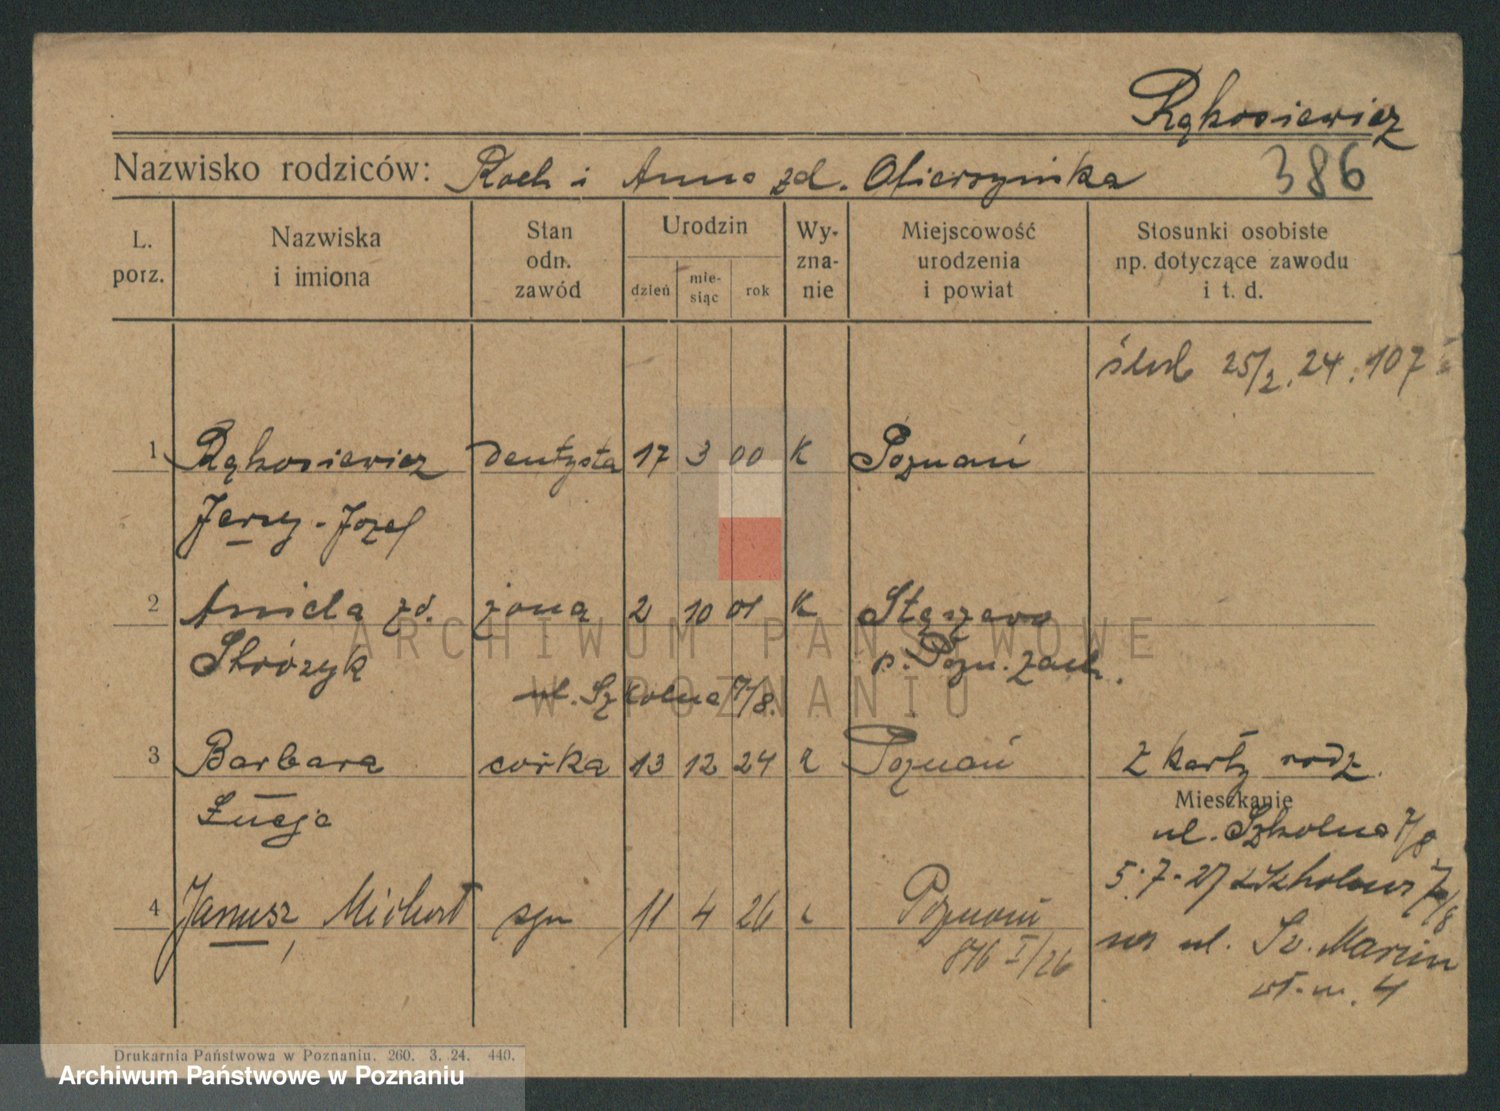 Rąkosiewicz
386
Nazwisko rodziców: Roch i Anna zd. Ofierzyńska
L. porz.
Nazwiska i imiona
Stan odn. zawód
Urodzin
dzień
mie-siąc
rok
Wy-zna-nie
Miejscowość urodzenia i powiat
Stosunki osobiste np. dotyczące zawodu i t. d.
ślub 25/2. 24. 107
1 Rąkosiewicz dentysta 17 3 00 K Poznań
Jerzy-Józef
2 Aniela zd. żona 2 10 01 K Stęszewo
Stróżyk p. Pozn. zach.
ul. Szkolna 7/8.
3 Barbara córka 13 12 24 Poznań z karty rodz.
Łucja
Mieszkanie
ul. Szkolna 7/8
5.7.27 z Szkolnej 7/8
4 Janusz, Michał syn 11 4 26 Poznań
846 I/26
na ul. Św. Marcin
m. 4
ARCHIWUM PAŃSTWOWE
W POZNANIU
Drukarnia Państwowa w Poznaniu. 260. 3. 24. 440.
Archiwum Państwowe w Poznaniu